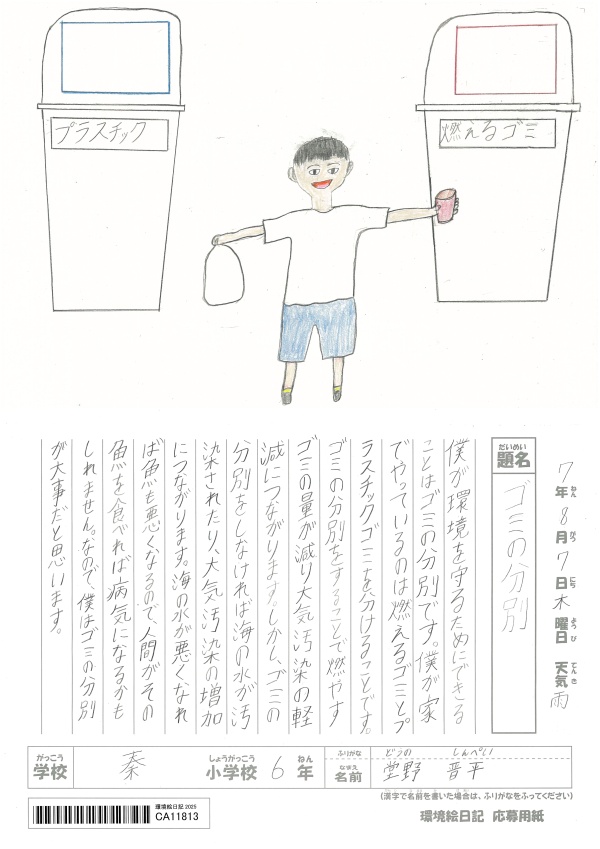 プラスチック
燃えるゴミ
7年8月7日木曜日 天気雨
ねん がつ にち ようび てんき
だいめい
題名
ゴミの分別
僕が環境を守るためにできる
ことはゴミの分別です。僕が家
でやっているのは燃えるゴミとプ
ラスチックゴミを分けることです。
ゴミの分別をすることで燃やす
ゴミの量が減り大気汚染の軽
減につながります。しかし、ゴミの
分別をしなければ海の水が汚
染されたり、大気汚染の増加
につながります。海の水が悪くなれ
ば魚も悪くなるので、人間がその
魚を食べれば病気になるかも
しれません。なので、僕はゴミの分別
が大事だと思います。
がっこう
学校
秦
しょうがっこう
小学校
6
ねん
年
ふりがな
どうの しんぺい
なまえ
名前
堂野 晋平
(漢字で名前を書いた場合は、ふりがなをふってください)
環境絵日記 2025
CA11813
環境絵日記 応募用紙